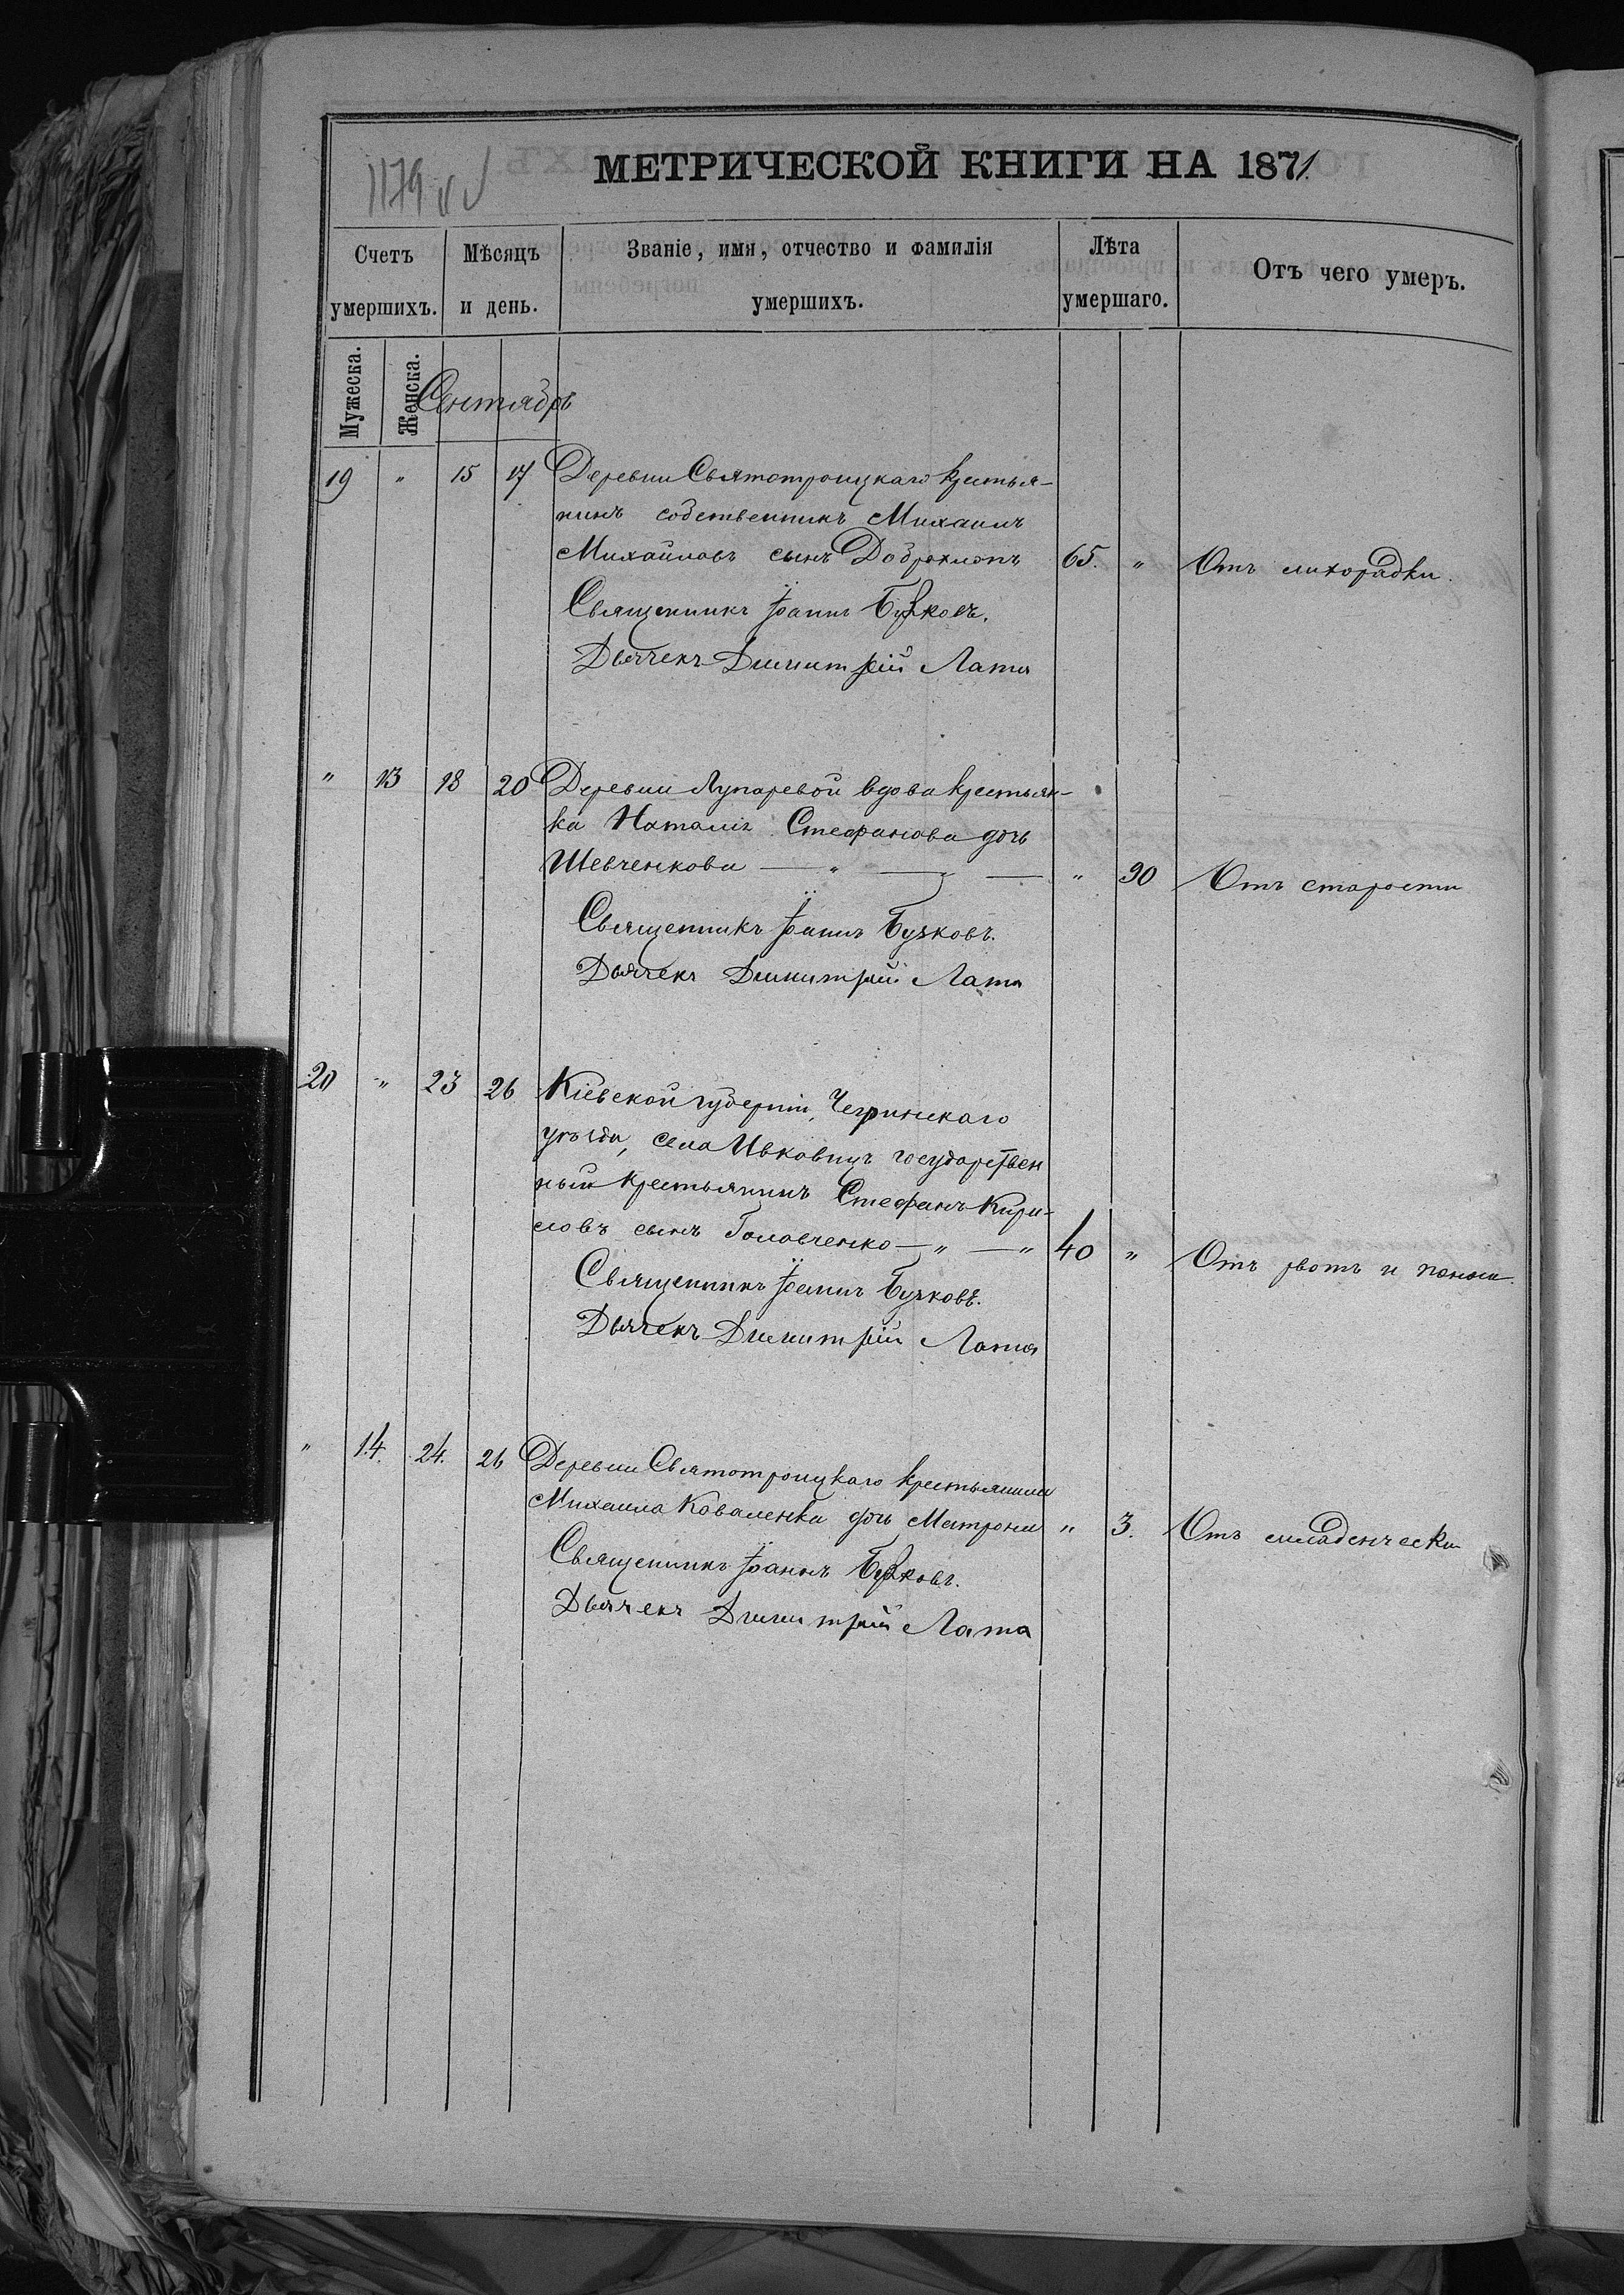 1179 об
МЕТРИЧЕСКОЙ КНИГИ НА 1871
Счетъ умершихъ.
Мѣсяцъ и день.
Званіе, имя, отчество и фамилія умершихъ.
Лѣта умершаго.
Отъ чего умеръ.
Мужеска.
Женска.
Сентябрь
19 " 15 17 Деревни Святотроицкаго крестья-
нинъ собственникъ Михаилъ
Михайловъ сынъ Доброхлопъ 65. " Отъ лихорадки.
Священникъ Іоаннъ Бучковъ.
Дьячекъ Димитрій Лата
" 13 18 20 Деревни Лупаревой вдова крестьян-
ка Наталія Стефанова дочь
Шевченкова — " — " — " 90 Отъ старости
Священникъ Іоаннъ Бучковъ.
Дьячекъ Димитрій Лата
20 " 23 26 Кіевской губерніи, Чегринскаго
уѣзда, села Ивковцъ государствен
ный крестьянинъ Стефанъ Кири-
ловъ сынъ Головченко — " — " 40 " Отъ рвотъ и поноса.
Священникъ Іоаннъ Бучковъ.
Дьячекъ Димитрій Лата
" 14. 24. 26 Деревни Святотроицкаго крестьянина
Михаила Коваленка дочь Матрона " 3. Отъ младенческ
Священникъ Іоаннъ Бучковъ.
Дьячекъ Димитрій Лата